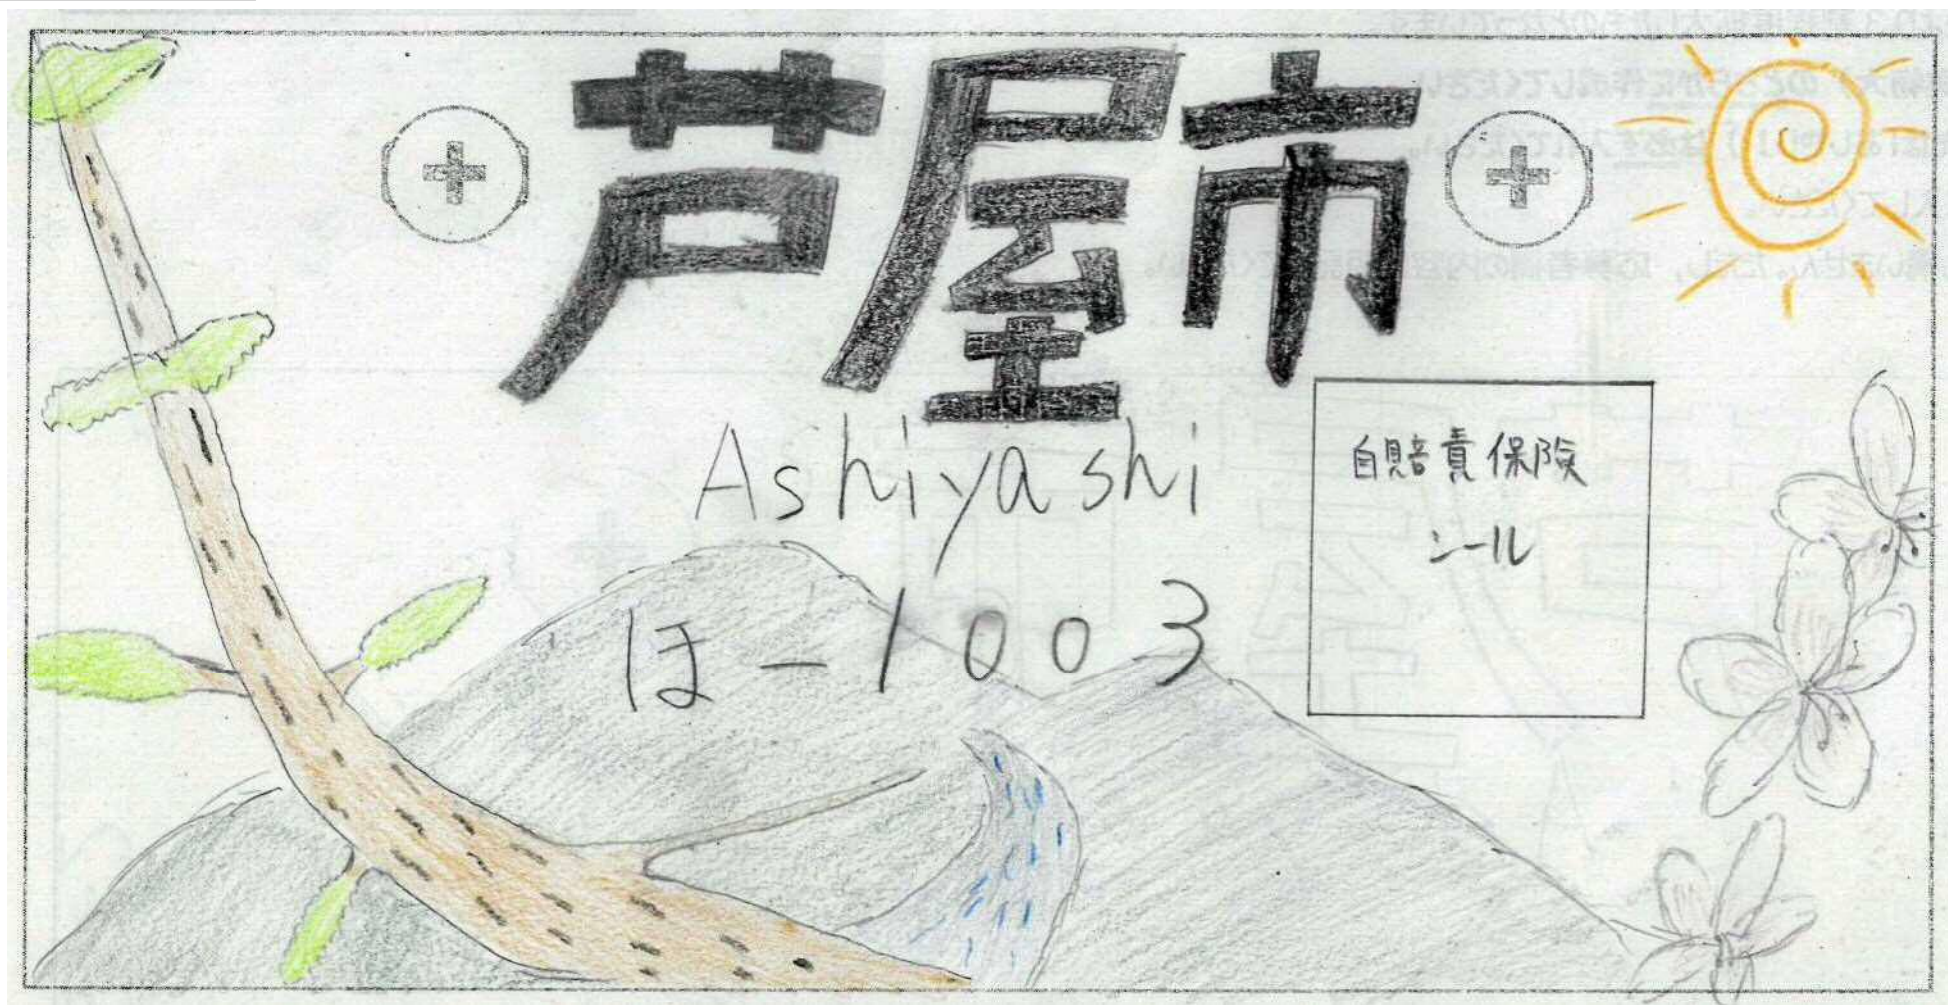 芦屋市
Ashiyashi
ほ-1003
自賠責保険
シール